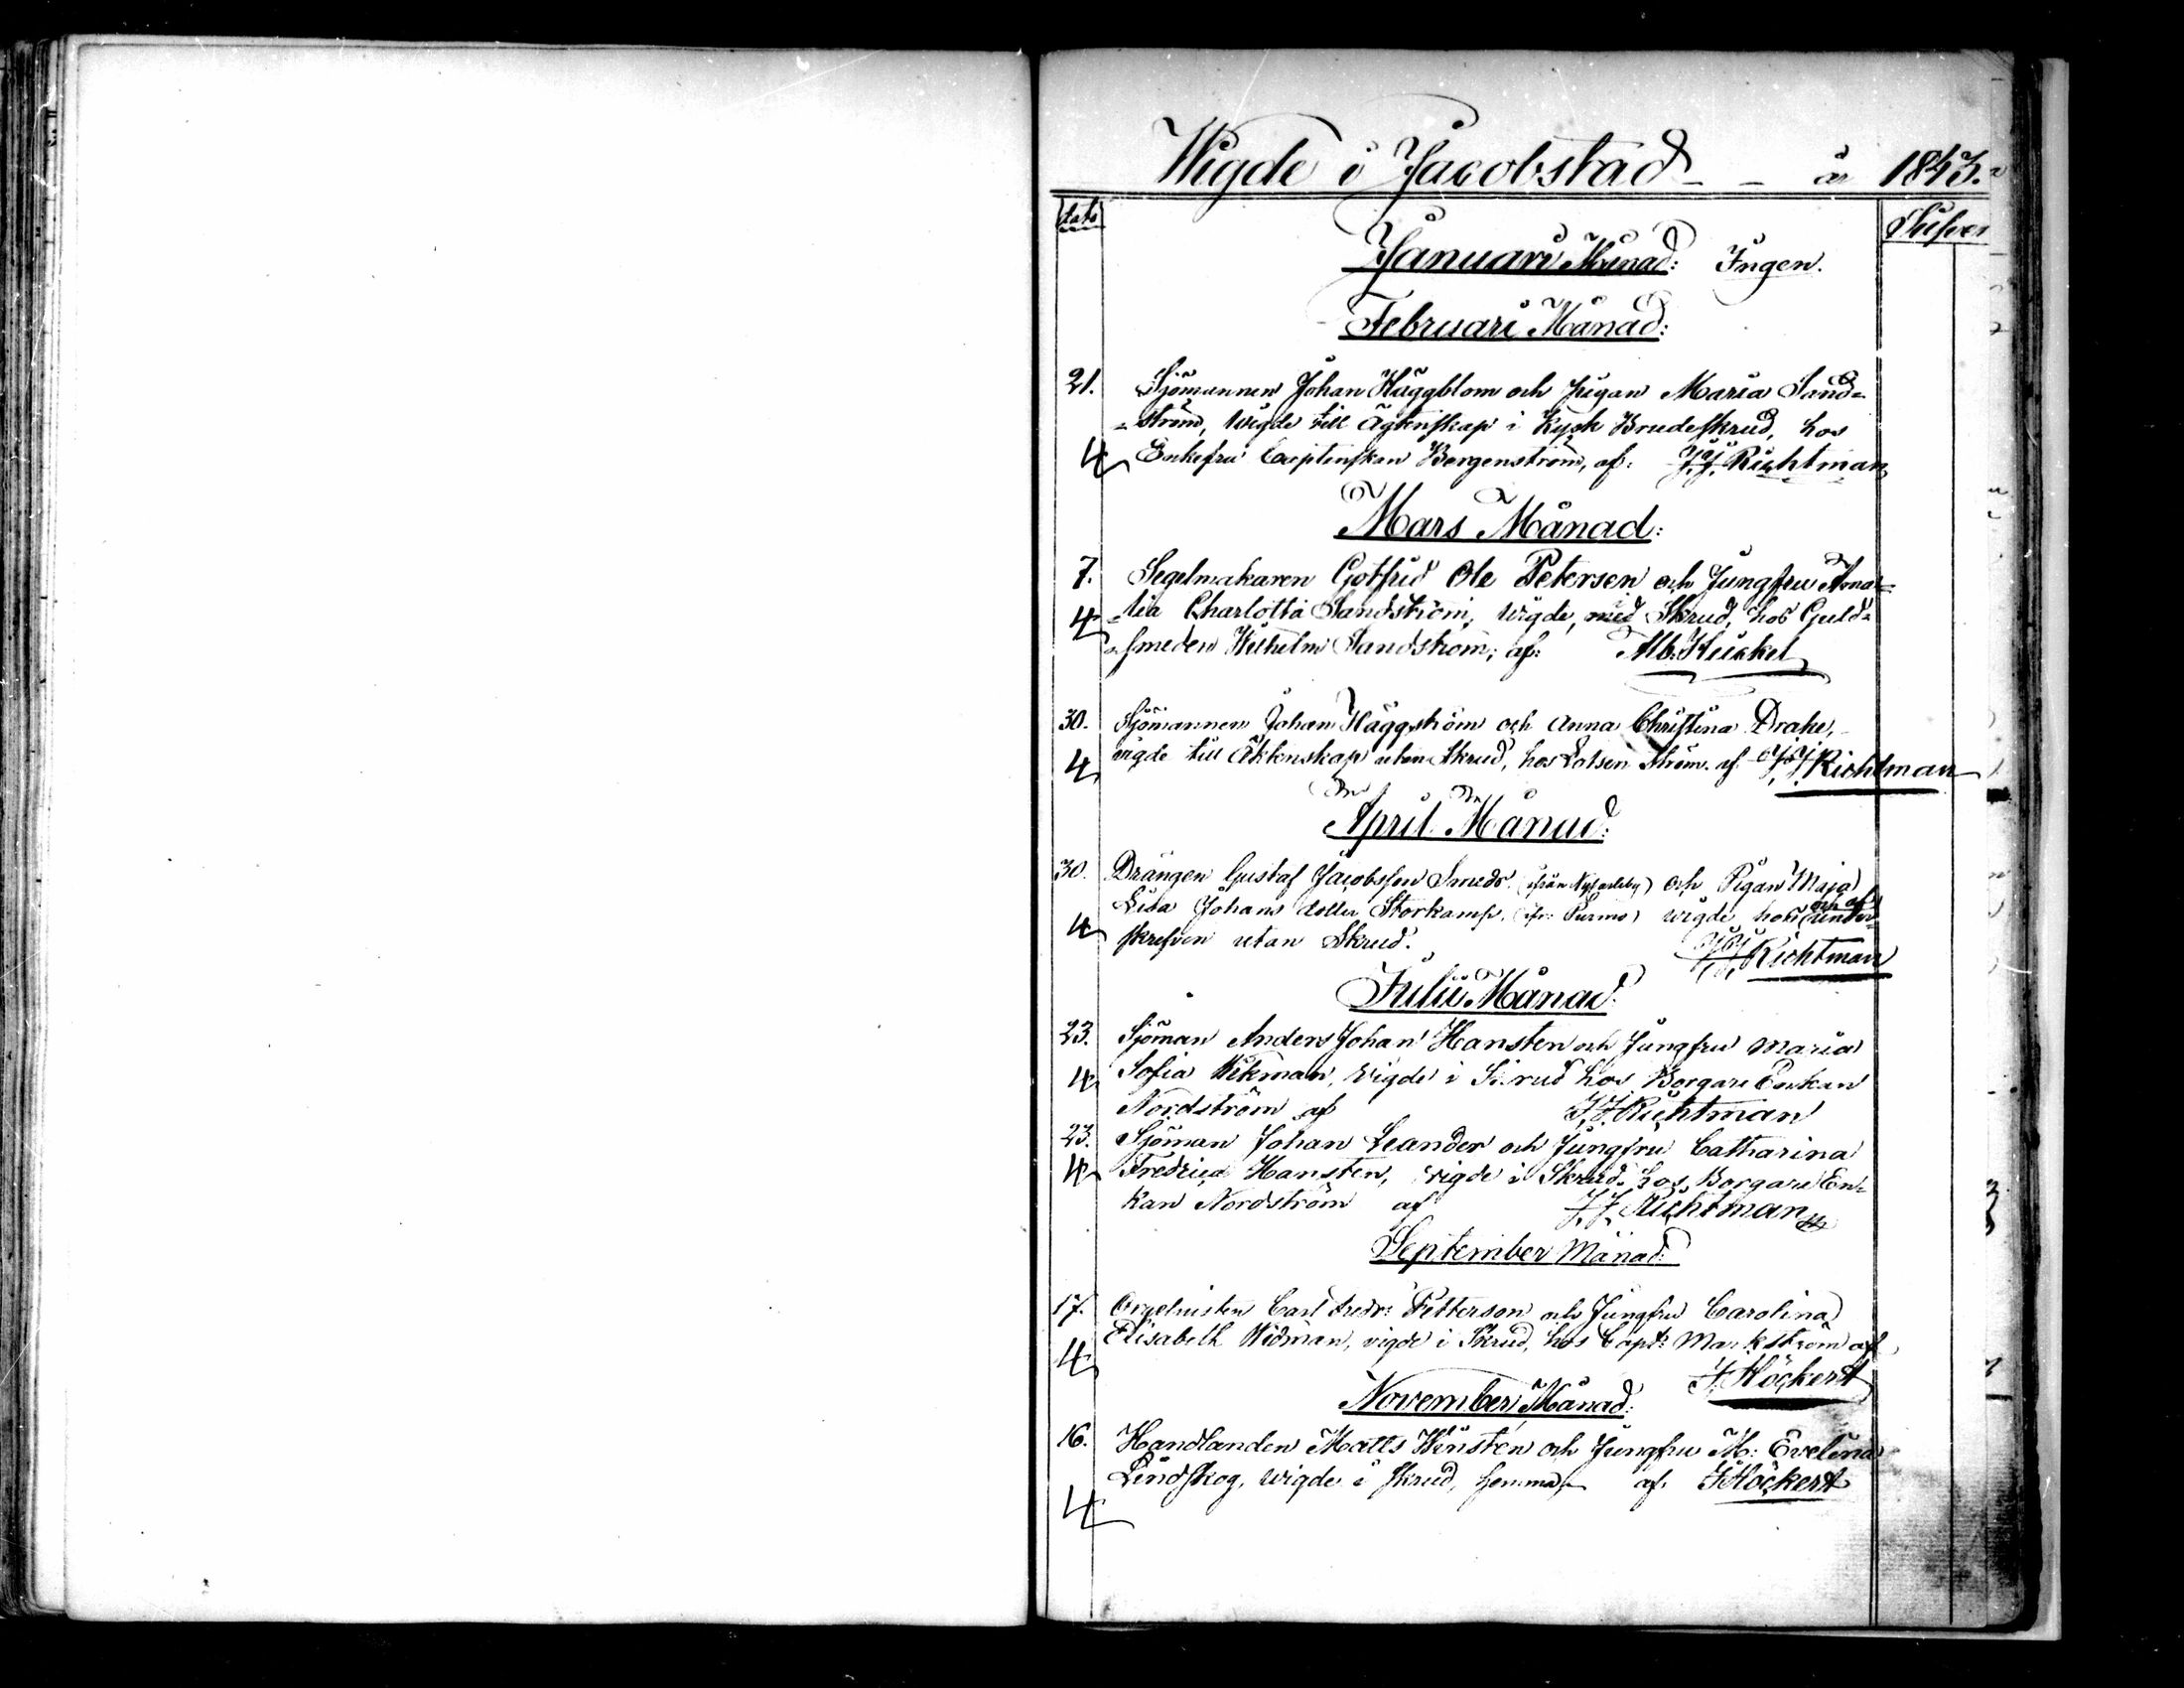 Wigde i Jacobstad - - år 1843.
Dato
Januari Månad: Ingen.
Februari Månad:
21. Sjömannen Johan Häggblom och pigan Maria Sand=
=ström, wigde till Ägtenskap i Rysk Brudeskrud, hos
4 Enkefru Captenskan Bergenström, af: J. J. Richtman
Mars Månad:
7. Segelmakaren Gotfrid Ole Petersen och Jungfru Ama=
4 =lia Charlotta Sandström, wigde, med Skrud, hos Guld=
=smeden Wilhelm Sandström; af: Alb. Heickel
30. Sjömannen Johan Häggström och Anna Christina Drake,
4 vigde till Äktenskap utan Skrud, hos Lotsen Ström. af J. J. Richtman
April Månad:
30. Drängen Gustaf Jacobsson Smeds (ifrån Nykarleby) och Pigan Maja
Lisa Johans dotter Storkamp, (ifr: Purmo) wigde hos och af under=
4 skrefven utan Skrud. J. J. Richtman
Julii Månad:
23. Sjöman Anders Johan Hansten och Jungfru Maria
4 Sofia Wikman, vigde i Skrud hos Borgare Enkan
Nordström af J. J. Richtman
23. Sjöman Johan Leander och Jungfru Catharina
4 Fredrica Hansten, vigde i Skrud hos Borgare En=
kan Nordström af J. J. Richtman
September Månad:
17. Orgelnisten Carl Fredr: Petterson och Jungfru Carolina
Elisabeth Widman, vigde i Skrud, hos Capt: Markström af
4 J. Höckert
November Månad:
16. Handlanden Matts Winstén och Jungfru M: Evelina
Lindskog, wigde i skrud, hemma, af. J Höckert
4